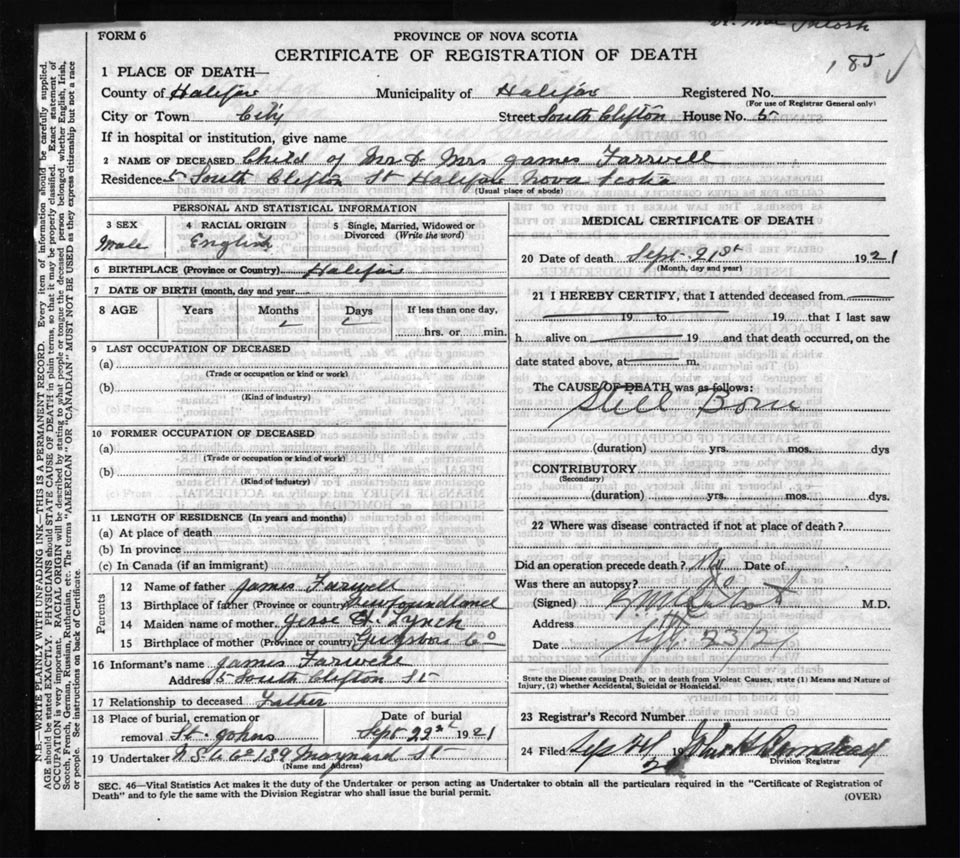 Dr. Mac Intosh
FORM 6
PROVINCE OF NOVA SCOTIA
CERTIFICATE OF REGISTRATION OF DEATH
185
1 PLACE OF DEATH—
County of Halifax Municipality of Halifax Registered No.
(For use of Registrar General only)
City or Town City Street South Clifton House No. 5
If in hospital or institution, give name
2 NAME OF DECEASED Child of Mr & Mrs James Farrwell
Residence 5 South Clifton St Halifax Nova Scotia
(Usual place of abode)
PERSONAL AND STATISTICAL INFORMATION
3 SEX 4 RACIAL ORIGIN 5 Single, Married, Widowed or Divorced (Write the word)
Male English
6 BIRTHPLACE (Province or Country) Halifax
7 DATE OF BIRTH (month, day and year)
8 AGE Years Months Days If less than one day,
hrs. or min.
9 LAST OCCUPATION OF DECEASED
(a)
(Trade or occupation or kind or work)
(b)
(Kind of industry)
10 FORMER OCCUPATION OF DECEASED
(a)
(Trade or occupation or kind or work)
(b)
(Kind of industry)
11 LENGTH OF RESIDENCE (In years and months)
(a) At place of death
(b) In province
(c) In Canada (if an immigrant)
Parents
12 Name of father James Farwell
13 Birthplace of father (Province or country) Newfoundland
14 Maiden name of mother Jesse H. Lynch
15 Birthplace of mother (Province or country) Guysboro Co
16 Informant's name James Farwell
Address 5 South Clifton St
17 Relationship to deceased Father
18 Place of burial, cremation or Date of burial
removal St. Johns Sept 22nd 1921
19 Undertaker N S U Co 139 Maynard St
(Name and address)
MEDICAL CERTIFICATE OF DEATH
20 Date of death Sept 21st 1921
(Month, day and year)
21 I HEREBY CERTIFY, that I attended deceased from
19 to 19 that I last saw
h alive on 19 and that death occurred, on the
date stated above, at m.
The CAUSE OF DEATH was as follows:
Still Born
(duration) yrs. mos. dys
CONTRIBUTORY
(Secondary)
(duration) yrs. mos. dys.
22 Where was disease contracted if not at place of death?
Did an operation precede death? No Date of
Was there an autopsy? No
(Signed) M.D.
Address
Date Sept 23/21
State the Disease causing Death, or in death from Violent Causes, state (1) Means and Nature of
Injury, (2) whether Accidental, Suicidal or Homicidal.
23 Registrar's Record Number
24 Filed 19
Division Registrar
SEC. 46—Vital Statistics Act makes it the duty of the Undertaker or person acting as Undertaker to obtain all the particulars required in the "Certificate of Registration of
Death" and to fyle the same with the Division Registrar who shall issue the burial permit.
(OVER)
N.B.—WRITE PLAINLY WITH UNFADING INK—THIS IS A PERMANENT RECORD. Every item of information should be carefully supplied.
AGE should be stated EXACTLY. PHYSICIANS should STATE CAUSE OF DEATH in plain terms, so that it may be properly classified. Exact statement of
OCCUPATION is very important. RACIAL ORIGIN will be described by stating to what people or tongue the deceased person belonged whether English, Irish,
Scotch, French, German, Russian, Ruthenian, etc. The terms "AMERICAN" OR "CANADIAN" MUST NOT BE USED as they express citizenship but not a race
or people. See instructions on back of Certificate.